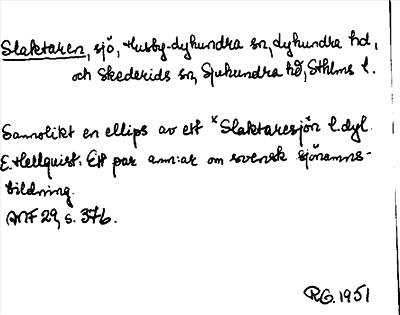 Slaktaren, sjö, Husby-Lyhundra sn, Lyhundra hd,
och Skederids sn, Sjuhundra hd, Sthlms l.
Sannolikt en ellips av ett *Slaktaresjön l. dyl.
E. Hellquist: Ett par anm:ar om svensk sjönamns-
bildning.
ANF 29, s. 376.
RG. 1951